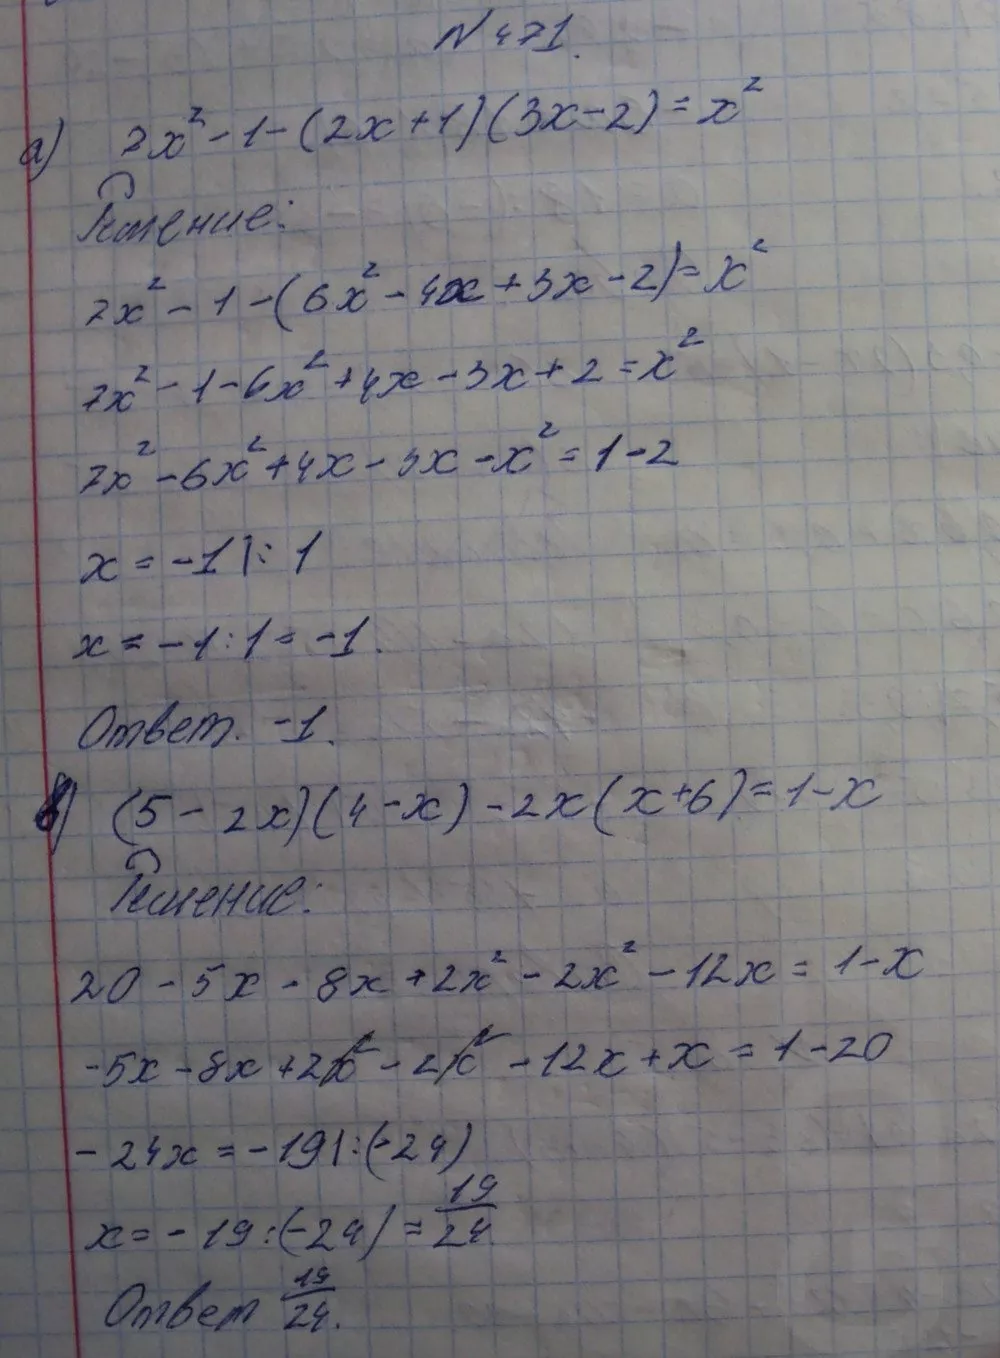 № 471.
а) 7x² - 1 - (2x + 1)(3x - 2) = x²
Решение:
7x² - 1 - (6x² - 4x + 3x - 2) = x²
7x² - 1 - 6x² + 4x - 3x + 2 = x²
7x² - 6x² + 4x - 3x - x² = 1 - 2
x = -1 |: 1
x = -1 : 1 = -1.
Ответ. -1.
в) (5 - 2x)(4 - x) - 2x(x + 6) = 1 - x
Решение:
20 - 5x - 8x + 2x² - 2x² - 12x = 1 - x
-5x - 8x + 2x² - 2x² - 12x + x = 1 - 20
- 24x = -19 |: (-24)
x = - 19 : (-24) = 19/24.
Ответ 19/24.